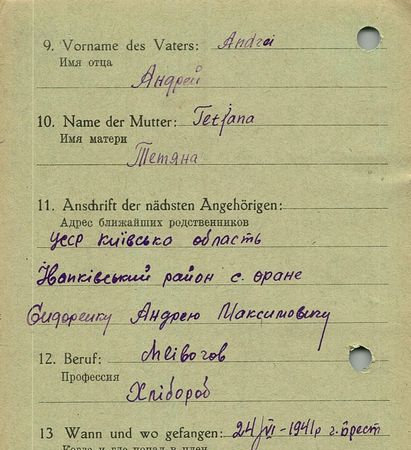 9. Vorname des Vaters: Andrei
Имя отца
Андрей
10. Name der Mutter: Tetjana
Имя матери
Тетяна
11. Anschrift der nächsten Angehörigen:
Адрес ближайших родственников
УССР Київсько область
район с. Оране
Сидоренку Андрею Максимовичу
12. Beruf:
Профессия
Хлібороб
13 Wann und wo gefangen: 24/VI-1941р г. Брест
Когда и где попал в плен